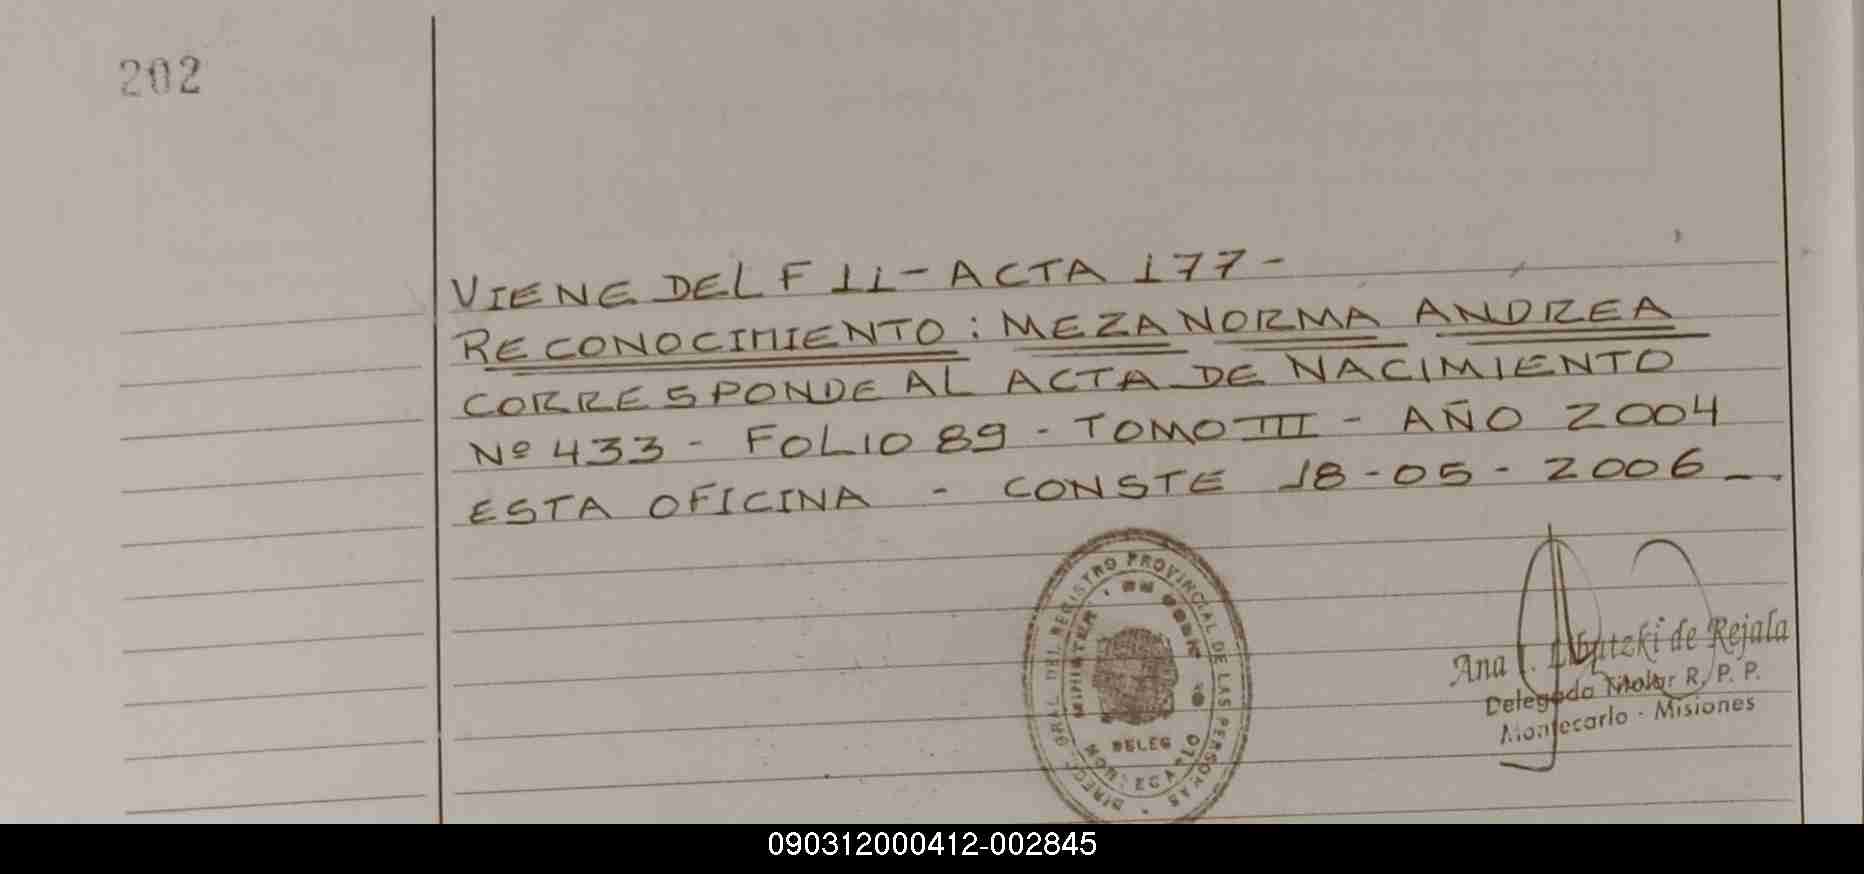 202
VIENE DEL F 11 - ACTA 177 -
RECONOCIMIENTO : MEZA NORMA ANDREA
CORRESPONDE AL ACTA DE NACIMIENTO
Nº 433 - FOLIO 89 - TOMO III - AÑO 2004
ESTA OFICINA - CONSTE 18-05-2006 -
DIRECC. GRAL. DEL REGISTRO PROVINCIAL DE LAS PERSONAS
Ana de Rejala
Delegada Titular R. P. P.
Montecarlo - Misiones
090312000412-002845